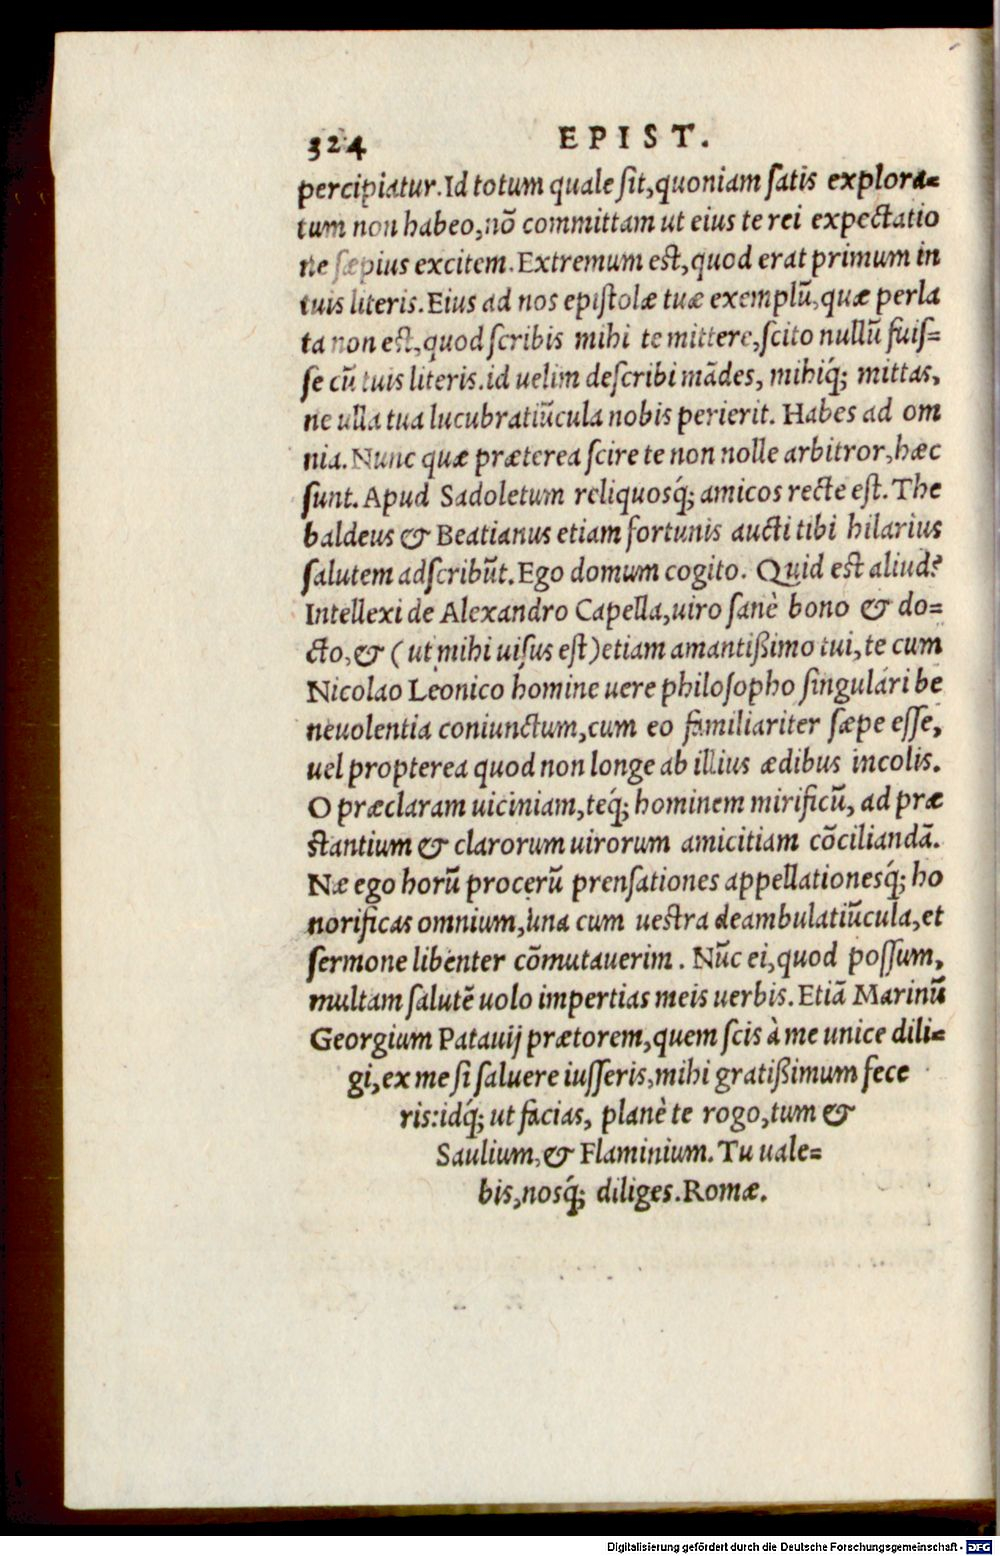 324 EPIST.
percipiatur. Id totum quale sit, quoniam satis explora=
tum non habeo, nõ committam ut eius te rei expectatio
ne sæpius excitem. Extremum est, quod erat primum in
tuis literis. Eius ad nos epistolæ tuæ exemplũ, quæ perla
ta non est, quod scribis mihi te mittere, scito nullũ fuis=
se cũ tuis literis. id uelim describi mãdes, mihiq́; mittas,
ne ulla tua lucubratiũcula nobis perierit. Habes ad om
nia. Nunc quæ præterea scire te non nolle arbitror, hæc
sunt. Apud Sadoletum reliquosq́; amicos recte est. The
baldeus & Beatianus etiam fortunis aucti tibi hilarius
salutem adscribũt. Ego domum cogito. Quid est aliud?
Intellexi de Alexandro Capella, uiro sanè bono & do=
cto, & (ut mihi uisus est) etiam amantißimo tui, te cum
Nicolao Leonico homine uere philosopho singulári be
neuolentia coniunctum, cum eo familiariter sæpe esse,
uel propterea quod non longe ab illius ædibus incolis.
O præclaram uiciniam, teq́; hominem mirificũ, ad præ
stantium & clarorum uirorum amicitiam cõciliandã.
Næ ego horũ procerũ prensationes appellationesq́; ho
norificas omnium, una cum uestra deambulatiũcula, et
sermone libenter cõmutauerim. Nũc ei, quod possum,
multam salutẽ uolo impertias meis uerbis. Etiã Marinũ
Georgium Patauij prætorem, quem scis à me unice dili=
gi, ex me si saluere iusseris, mihi gratißimum fece
ris: idq́; ut facias, planè te rogo, tum &
Saulium, & Flaminium. Tu uale=
bis, nosq́; diliges. Romæ.
Digitalisierung gefördert durch die Deutsche Forschungsgemeinschaft - DFG